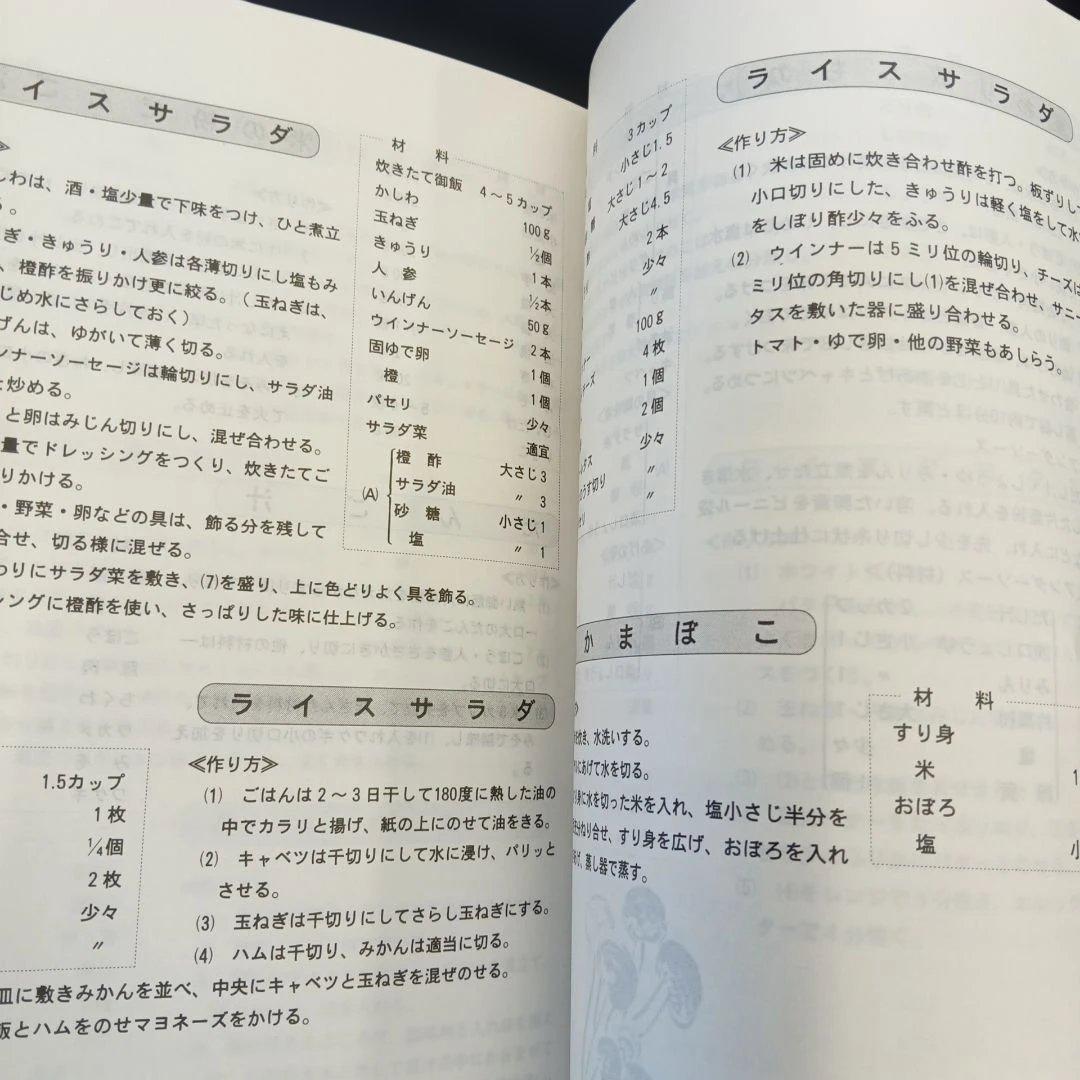 イスサラダ
しわは、酒・塩少量で下味をつけ、ひと煮立
る。
ぎ・きゅうり・人参は各薄切りにし塩もみ
、橙酢を振りかけ更に絞る。（玉ねぎは、
じめ水にさらしておく）
げんは、ゆがいて薄く切る。
ンナーソーセージは輪切りにし、サラダ油
と炒める。
と卵はみじん切りにし、混ぜ合わせる。
量でドレッシングをつくり、炊きたてご
りかける。
・野菜・卵などの具は、飾る分を残して
合せ、切る様に混ぜる。
わりにサラダ菜を敷き、⑺を盛り、上に色どりよく具を飾る。
シングに橙酢を使い、さっぱりした味に仕上げる。
材料
炊きたて御飯 4～5カップ
かしわ 100g
玉ねぎ ½個
きゅうり 1本
人参 ½本
いんげん 50g
ウインナーソーセージ 2本
固ゆで卵 1個
橙 1個
パセリ 少々
サラダ菜 適宜
(A)
橙酢 大さじ3
サラダ油 〃 3
砂糖 小さじ1
塩 〃 1
ライスサラダ
1.5カップ
1枚
¼個
2枚
少々
〃
≪作り方≫
⑴ ごはんは2～3日干して180度に熱した油の
中でカラリと揚げ、紙の上にのせて油をきる。
⑵ キャベツは千切りにして水に浸け、パリッと
させる。
⑶ 玉ねぎは千切りにしてさらし玉ねぎにする。
⑷ ハムは千切り、みかんは適当に切る。
皿に敷きみかんを並べ、中央にキャベツと玉ねぎを混ぜのせる。
飯とハムをのせマヨネーズをかける。
ライスサラダ
料
3カップ
小さじ1.5
大さじ1～2
大さじ4.5
2本
少々
〃
100g
4枚
1個
2個
少々
〃
〃
タス
うす切り
セリ
≪作り方≫
⑴ 米は固めに炊き合わせ酢を打つ。板ずりし
小口切りにした、きゅうりは軽く塩をして水
をしぼり酢少々をふる。
⑵ ウインナーは5ミリ位の輪切り、チーズは
ミリ位の角切りにし⑴を混ぜ合わせ、サニー
タスを敷いた器に盛り合わせる。
トマト・ゆで卵・他の野菜もあしらう。
かまぼこ
炊き、水洗いする。
にあげて水を切る。
身に水を切った米を入れ、塩小さじ半分を
ねり合せ、すり身を広げ、おぼろを入れ
蒸し器で蒸す。
材料
すり身
米
おぼろ
塩